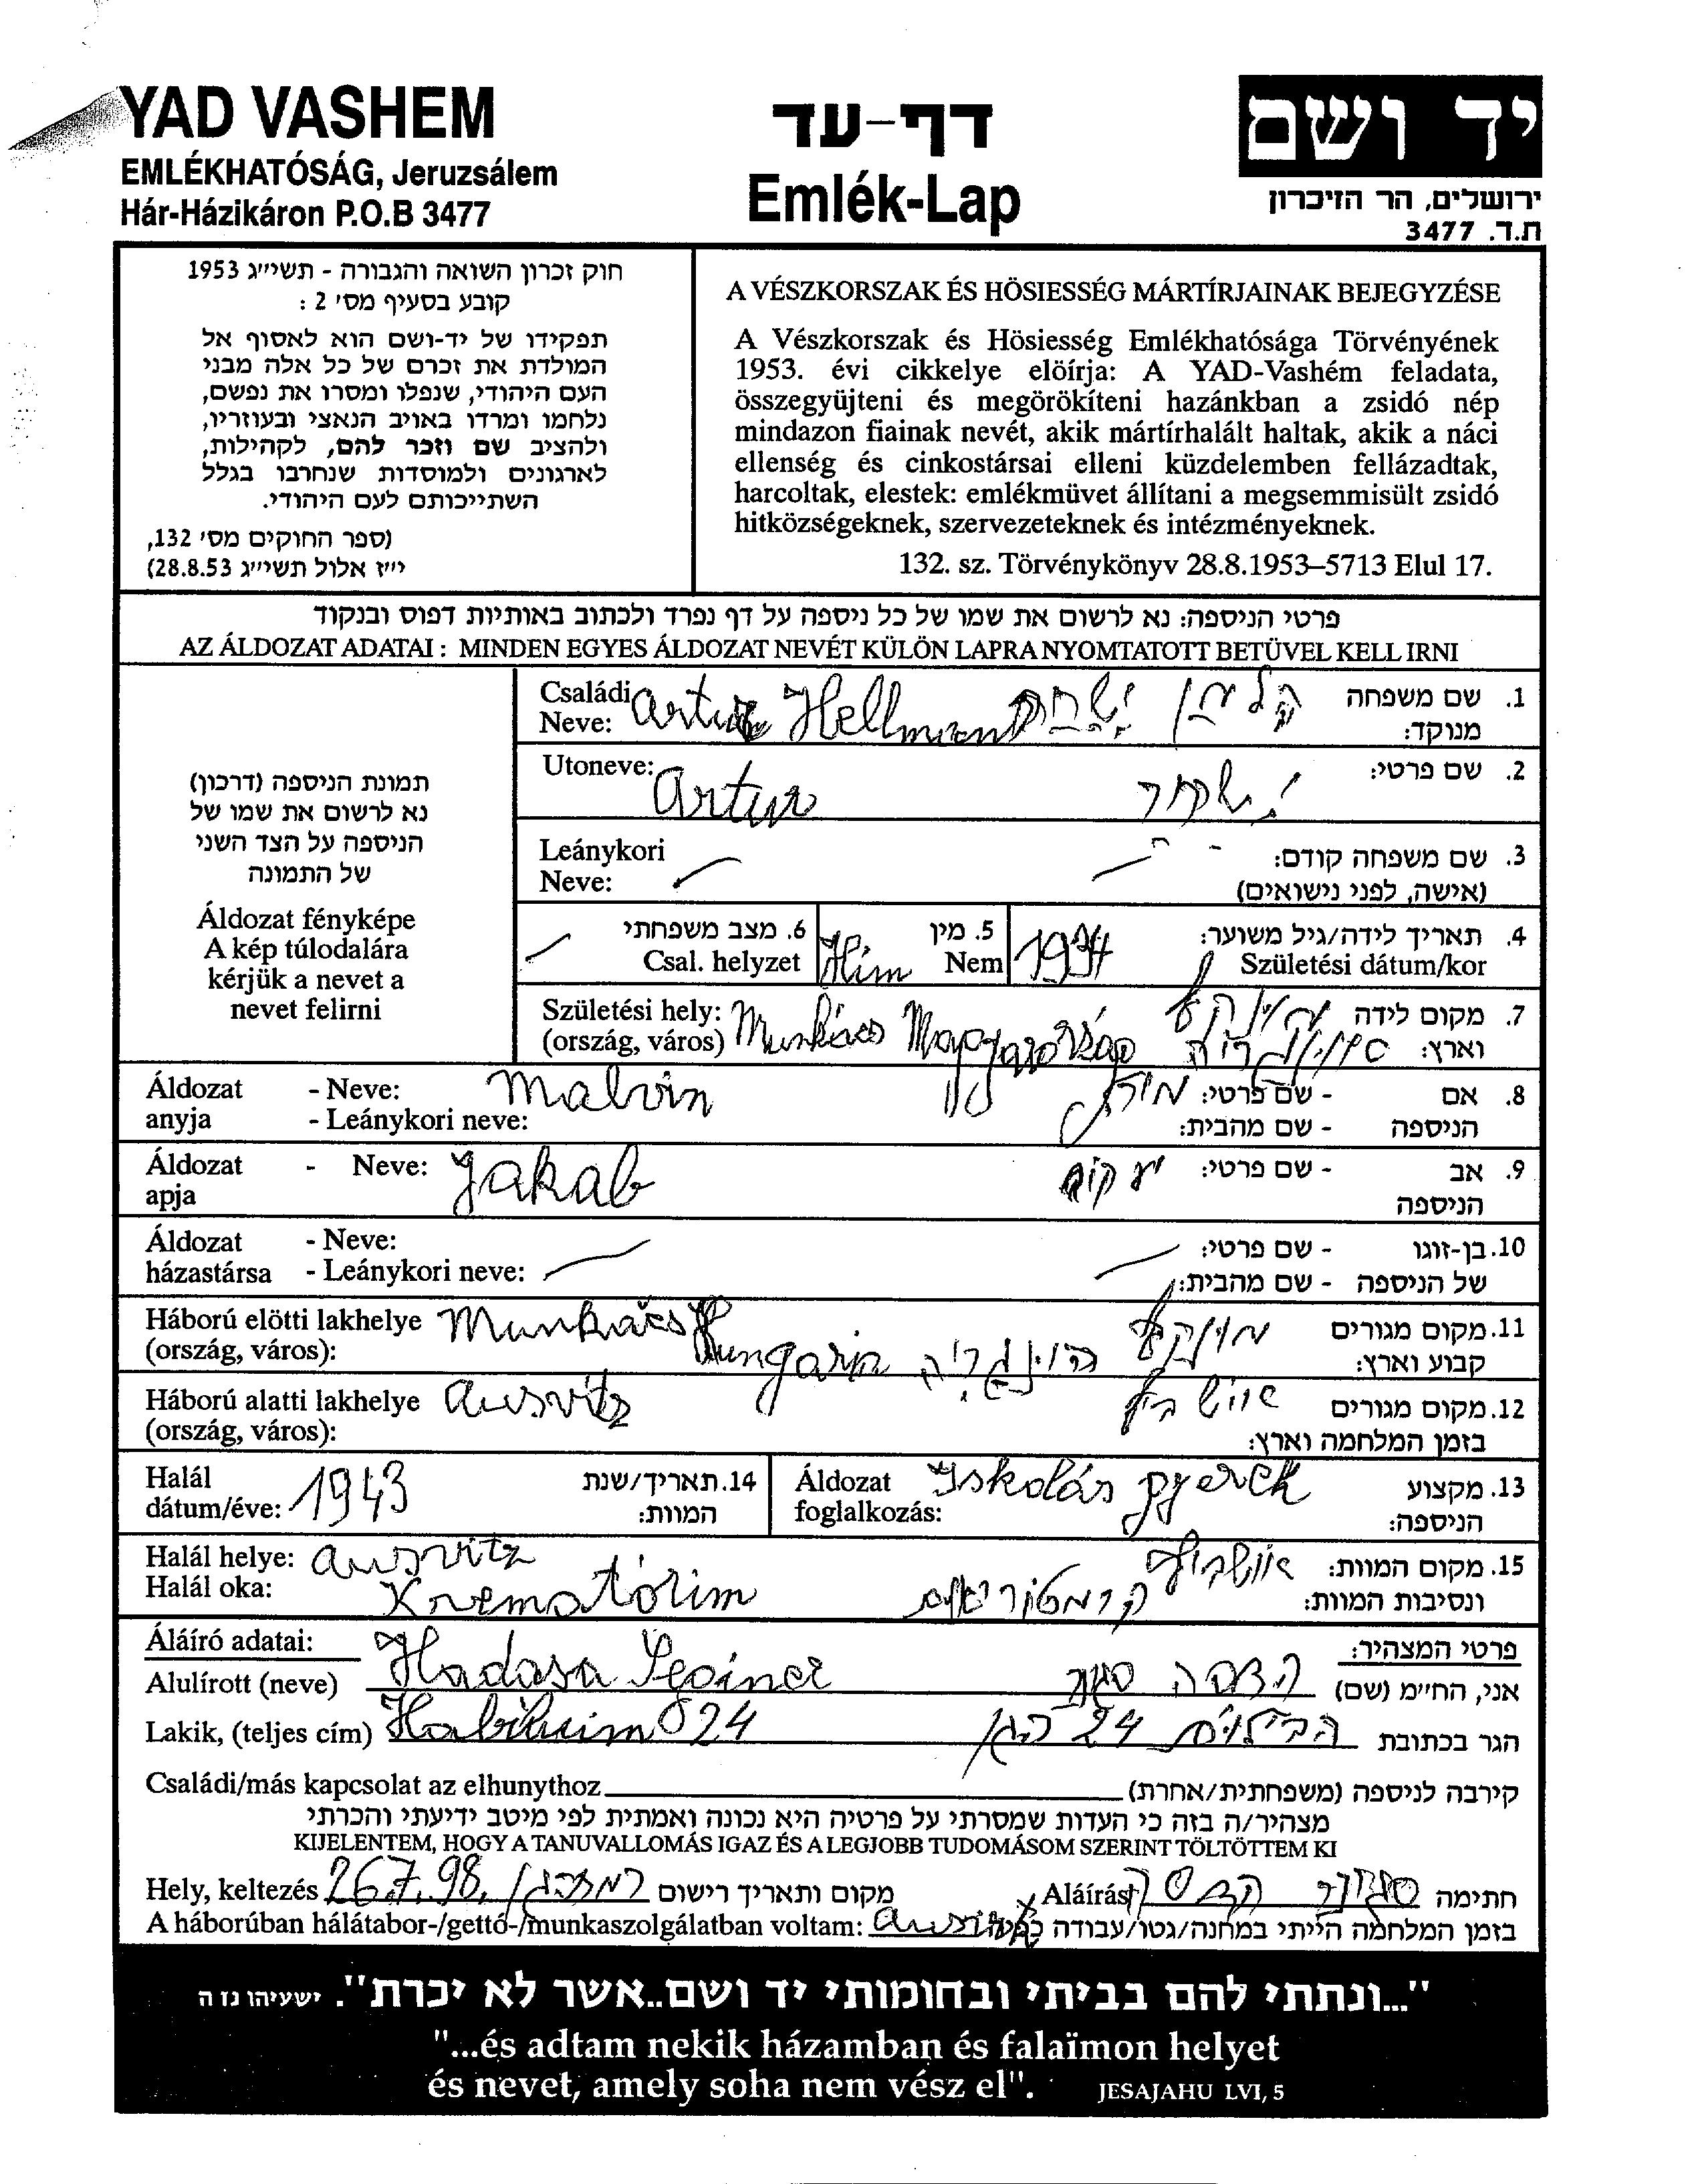 YAD VASHEM
EMLÉKHATÓSÁG, Jeruzsálem
Hár-Házikáron P.O.B 3477
דף-עד
Emlék-Lap
יד ושם
ירושלים, הר הזיכרון
ת.ד. 3477
חוק זכרון השואה והגבורה - תשי״ג 1953
קובע בסעיף מס׳ 2 :
תפקידו של יד-ושם הוא לאסוף אל
המולדת את זכרם של כל אלה מבני
העם היהודי, שנפלו ומסרו את נפשם,
נלחמו ומרדו באויב הנאצי ובעוזריו,
ולהציב שם וזכר להם, לקהילות,
לארגונים ולמוסדות שנחרבו בגלל
השתייכותם לעם היהודי.
(ספר החוקים מס׳ 132,
י״ז אלול תשי״ג 28.8.53)
A VÉSZKORSZAK ÉS HÖSIESSÉG MÁRTÍRJAINAK BEJEGYZÉSE
A Vészkorszak és Hösiesség Emlékhatósága Törvényének
1953. évi cikkelye elöírja: A YAD-Vashém feladata,
összegyüjteni és megörökíteni hazánkban a zsidó nép
mindazon fiainak nevét, akik mártírhalált haltak, akik a náci
ellenség és cinkostársai elleni küzdelemben fellázadtak,
harcoltak, elestek: emlékmüvet állítani a megsemmisült zsidó
hitközségeknek, szervezeteknek és intézményeknek.
132. sz. Törvénykönyv 28.8.1953–5713 Elul 17.
פרטי הניספה: נא לרשום את שמו של כל ניספה על דף נפרד ולכתוב באותיות דפוס ובנקוד
AZ ÁLDOZAT ADATAI : MINDEN EGYES ÁLDOZAT NEVÉT KÜLÖN LAPRA NYOMTATOTT BETÜVEL KELL IRNI
תמונת הניספה (דרכון)
נא לרשום את שמו של
הניספה על הצד השני
של התמונה
Áldozat fényképe
A kép túlodalára
kérjük a nevet a
nevet felirni
Családi Neve: Artur Hellman הלמן 1. שם משפחה
מנוקד:
Utoneve: Artur 2. שם פרטי:
Leánykori 3. שם משפחה קודם:
Neve: (אישה, לפני נישואים)
6. מצב משפחתי 5. מין 4. תאריך לידה/גיל משוער:
Csal. helyzet Him Nem 1934 Születési dátum/kor
Születési hely: Munkács Magyarország מונקץ 7. מקום לידה
(ország, város) וארץ:
Áldozat - Neve: Malvin - שם פרטי: 8. אם
anyja - Leánykori neve: - שם מהבית: הניספה
Áldozat - Neve: Jakab יעקוב - שם פרטי: 9. אב
apja הניספה
Áldozat - Neve: - שם פרטי: 10. בן-זוגו
házastársa - Leánykori neve: - שם מהבית: של הניספה
Háború elötti lakhelye Munkács Hungaria הונגריה מונקץ 11. מקום מגורים
(ország, város): קבוע וארץ:
Háború alatti lakhelye Ausvitz 12. מקום מגורים
(ország, város): בזמן המלחמה וארץ:
Halál dátum/éve: 1943 14. תאריך/שנת המוות:
Áldozat foglalkozás: Iskolás gyerek 13. מקצוע הניספה:
Halál helye: Ausvitz אושביץ 15. מקום המוות:
Halál oka: Krematórim קרמטוריום ונסיבות המוות:
Áláíró adatai: פרטי המצהיר:
Alulírott (neve) Hadasa הדסה אני, החי״מ (שם)
Lakik, (teljes cím) Habiluim 24 הבילוים 24 הגר בכתובת
Családi/más kapcsolat az elhunythoz קירבה לניספה (משפחתית/אחרת)
מצהיר/ה בזה כי העדות שמסרתי על פרטיה היא נכונה ואמתית לפי מיטב ידיעתי והכרתי
KIJELENTEM, HOGY A TANUVALLOMÁS IGAZ ÉS A LEGJOBB TUDOMÁSOM SZERINT TÖLTÖTTEM KI
Hely, keltezés 26.7.98. מקום ותאריך רישום Aláírás הדסה חתימה
A háborúban hálátabor-/gettó-/munkaszolgálatban voltam: בזמן המלחמה הייתי במחנה/גטו/עבודה כפיה
"...ונתתי להם בביתי ובחומותי יד ושם..אשר לא יכרת". ישעיהו נז ה
"...és adtam nekik házamban és falaïmon helyet
és nevet, amely soha nem vész el". JESAJAHU LVI, 5